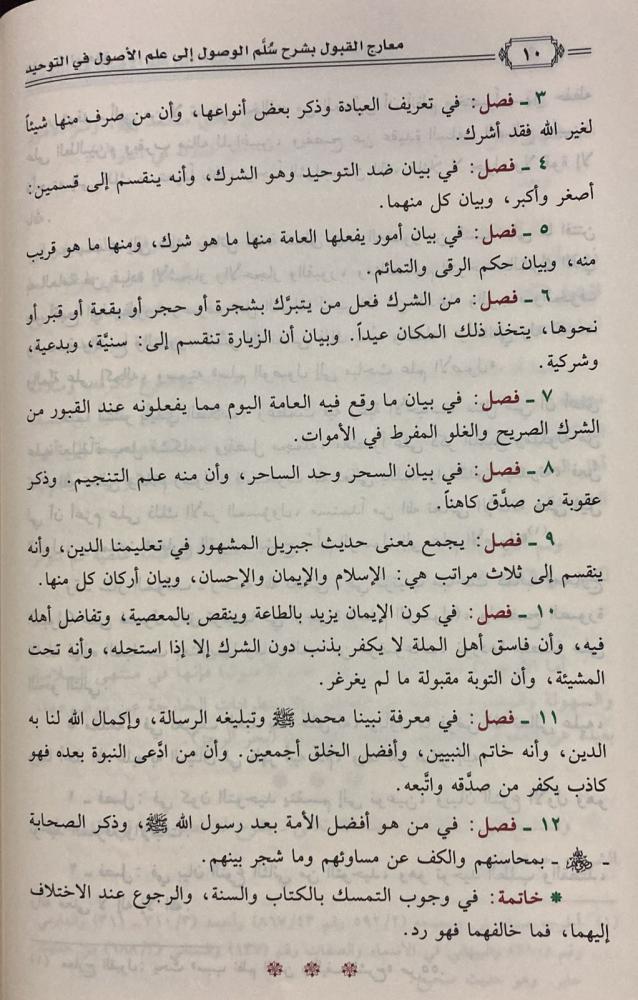 ١٠
معارج القبول بشرح سُلَّم الوصول إلى علم الأصول في التوحيد
٣ ـ فصل: في تعريف العبادة وذكر بعض أنواعها، وأن من صرف منها شيئاً
لغير الله فقد أشرك.
٤ ـ فصل: في بيان ضد التوحيد وهو الشرك، وأنه ينقسم إلى قسمين:
أصغر وأكبر، وبيان كل منهما.
٥ ـ فصل: في بيان أمور يفعلها العامة منها ما هو شرك، ومنها ما هو قريب
منه، وبيان حكم الرقى والتمائم.
٦ ـ فصل: من الشرك فعل من يتبرَّك بشجرة أو حجر أو بقعة أو قبر أو
نحوها، يتخذ ذلك المكان عيداً. وبيان أن الزيارة تنقسم إلى: سنيَّة، وبدعية،
وشركية.
٧ ـ فصل: في بيان ما وقع فيه العامة اليوم مما يفعلونه عند القبور من
الشرك الصريح والغلو المفرط في الأموات.
٨ ـ فصل: في بيان السحر وحد الساحر، وأن منه علم التنجيم. وذكر
عقوبة من صدَّق كاهناً.
٩ ـ فصل: يجمع معنى حديث جبريل المشهور في تعليمنا الدين، وأنه
ينقسم إلى ثلاث مراتب هي: الإسلام والإيمان والإحسان، وبيان أركان كل منها.
١٠ ـ فصل: في كون الإيمان يزيد بالطاعة وينقص بالمعصية، وتفاضل أهله
فيه، وأن فاسق أهل الملة لا يكفر بذنب دون الشرك إلا إذا استحله، وأنه تحت
المشيئة، وأن التوبة مقبولة ما لم يغرغر.
١١ ـ فصل: في معرفة نبينا محمد ﷺ وتبليغه الرسالة، وإكمال الله لنا به
الدين، وأنه خاتم النبيين، وأفضل الخلق أجمعين. وأن من ادَّعى النبوة بعده فهو
كاذب يكفر من صدَّقه واتَّبعه.
١٢ ـ فصل: في من هو أفضل الأمة بعد رسول الله ﷺ، وذكر الصحابة
ـ ﵃ ـ بمحاسنهم والكف عن مساوئهم وما شجر بينهم.
* خاتمة: في وجوب التمسك بالكتاب والسنة، والرجوع عند الاختلاف
إليهما، فما خالفهما فهو رد.